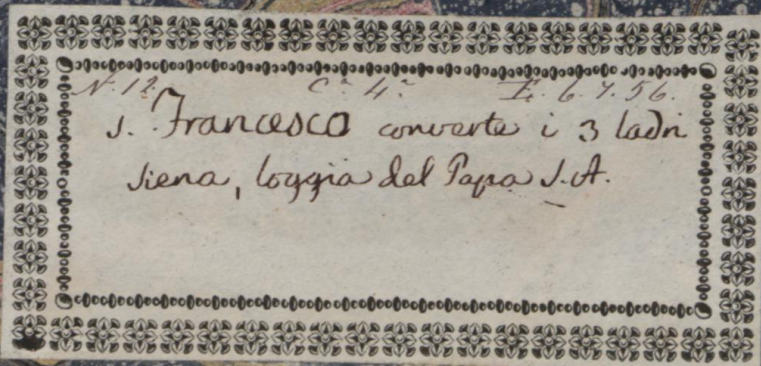 N. 12. C.a 4.a L. 6. 7. 56.
S. Francesco converte i 3 ladri
Siena, loggia del Papa S. A.